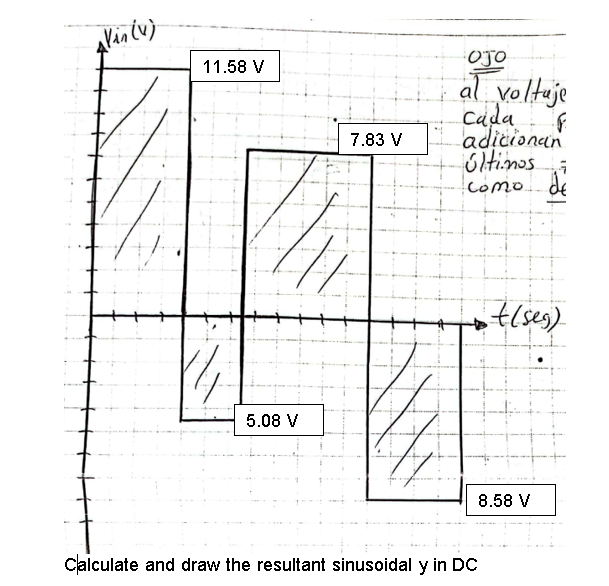 Vin(v)
11.58 V
OJO
al voltaje
cada
7.83 V
adicionan
últimos
como de
t(seg)
5.08 V
8.58 V
Calculate and draw the resultant sinusoidal y in DC